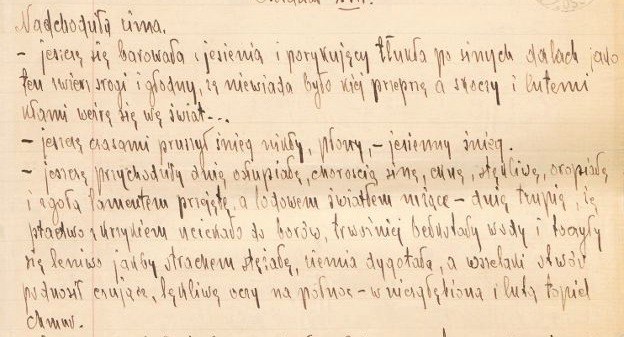 Nadchodziła zima.
– jeszcze się barowała z jesienią i porykujący tłukła po sinych dalach jako
ten zwierz srogi i głodny, że niewiada było kiej przeprze a skoczy i lutemi
kłami weprze się we świat...
– jeszcze czasami pruszył śnieg nikły, płowy, – jesienny śnieg.
– jeszcze przychodziły dnie osłupiałe, chorością sine, ckne, stękliwe, oropiałe
i zgoła lamentem przejęte, a lodowem światłem niące – dnie trupie, że
ptactwo z krzykiem uciekało do borów, trwożniej bełkotały wody i toczyły
się leniwo jakby strachem stężałe, ziemia dygotała, a wszelaki stwór
podnosił czujące, lękliwe oczy na północ – w niezgłębioną i lutą topiel
chmur.